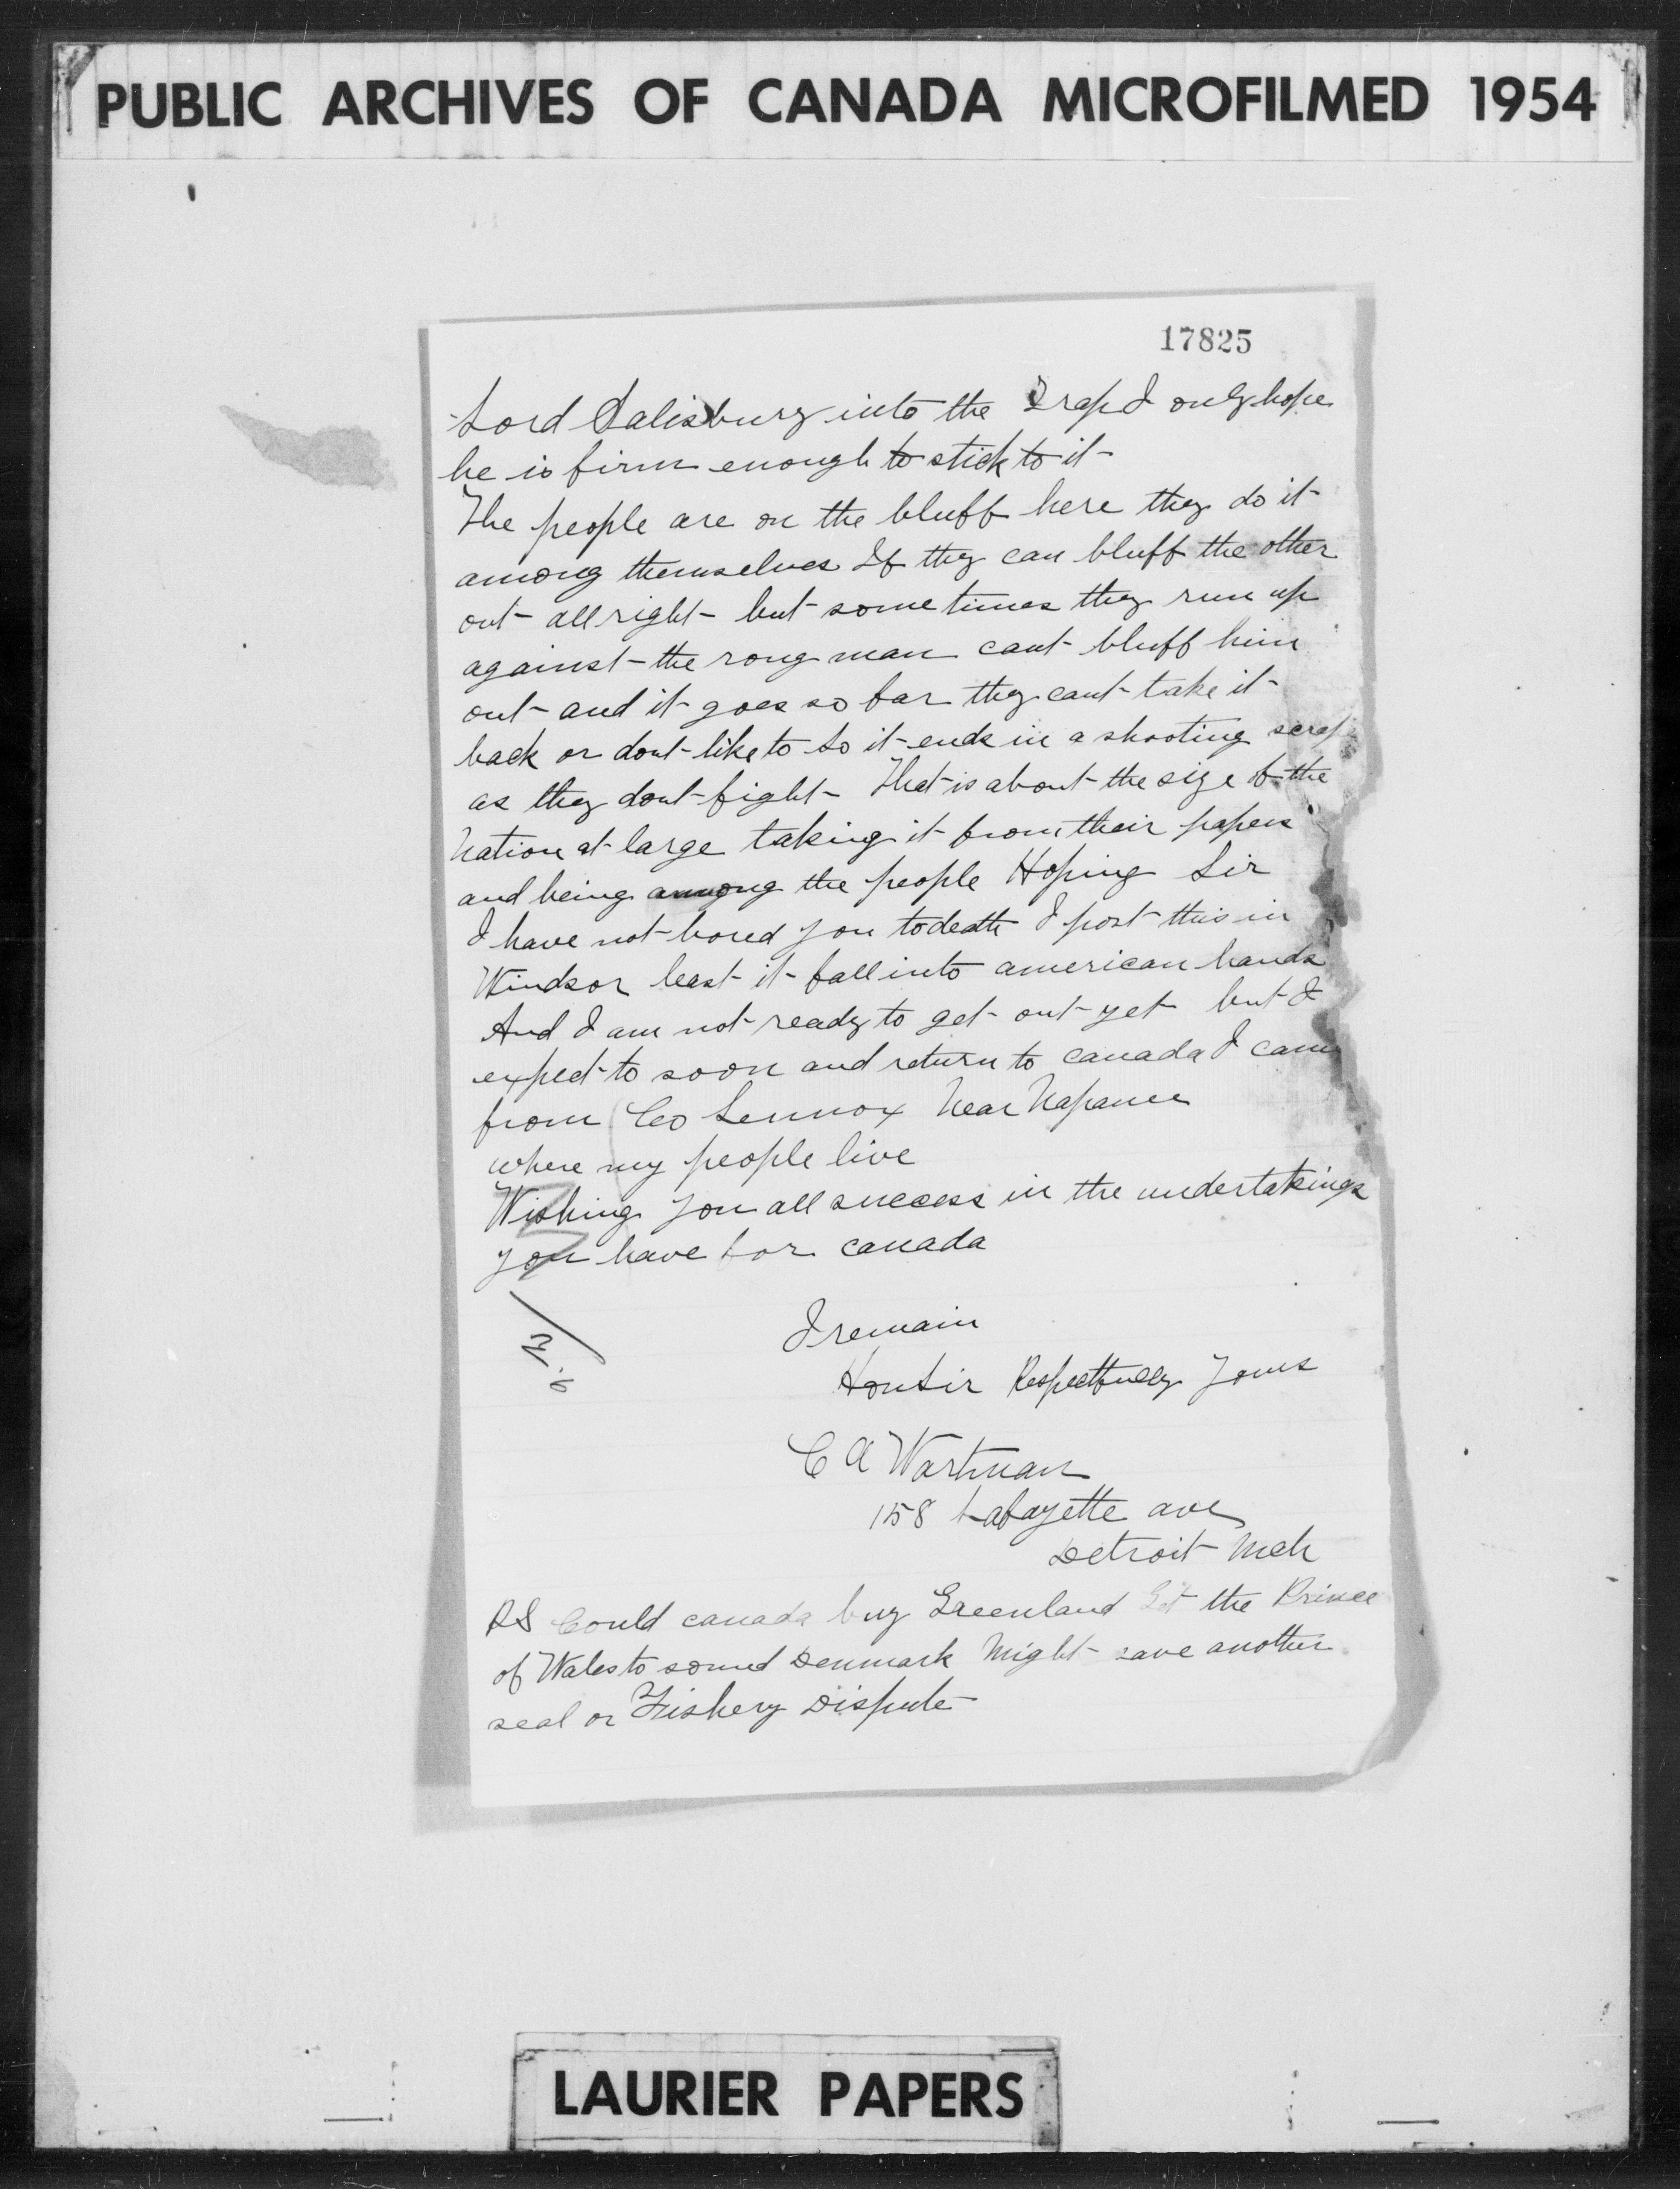 PUBLIC ARCHIVES OF CANADA MICROFILMED 1954
17825
Lord Salisbury into the Trap I only hope
he is firm enough to stick to it-
The people are on the bluff here they do it-
among themselves If they can bluff the other
out- all right- but- sometimes they run up
against- the rong man cant- bluff him
out- and it- goes so far they cant- take it-
back or dont- like to So it- ends in a shooting scrap
as they dont- fight- That- is about- the size of the
Nation at- large taking it- from their papers
and being among the people Hoping Sir
I have not- bored you to death I post- this in
Windsor least- it- fall into american hands
And I am not- ready to get- out- yet but- I
expect- to soon and return to canada I came
from Co Lennox Near Napanee
where my people live
Wishing you all success in the undertakings
you have for canada
I remain
Hon Sir Respectfully Yours
C A Wartman
158 Lafayette ave
Detroit- Mch
PS Could canada buy Greenland Get the Prince
of Wales to sound Denmark Might- save another
seal or Fishery Dispute-
LAURIER PAPERS